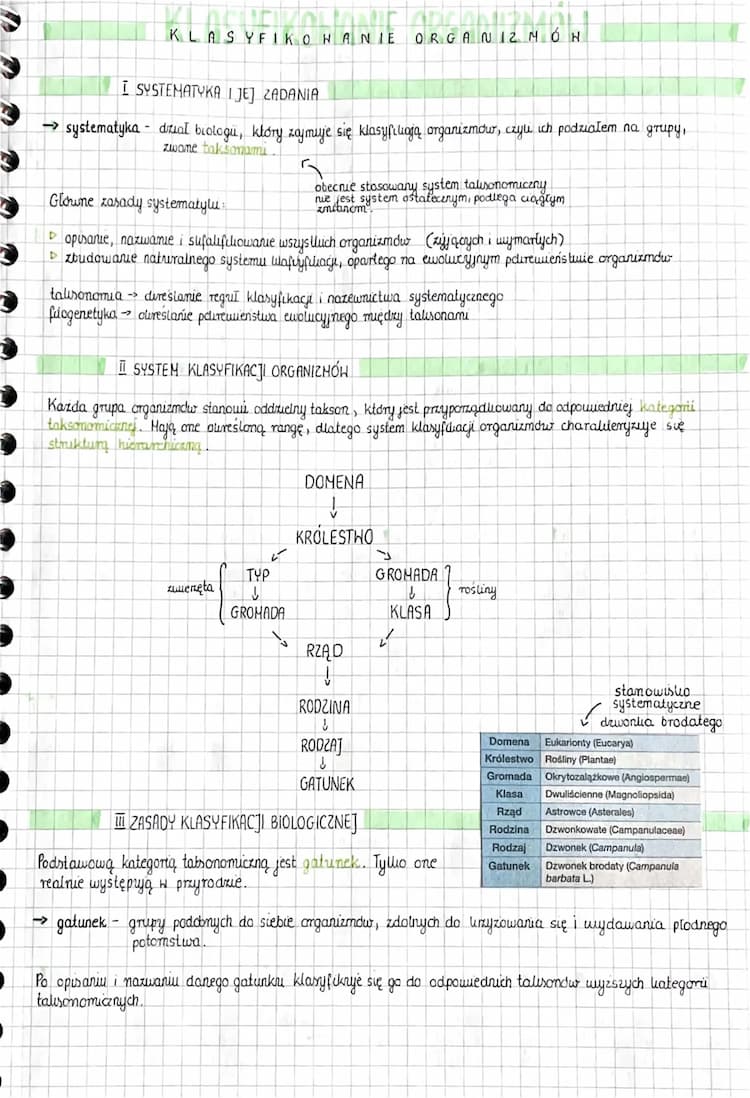 KLASYFIKOWANIE ORGANIZMÓW
I SYSTEMATYKA I JEJ ZADANIA
→ systematyka - dział biologii, który zajmuje się klasyfikają organizmów, czyli ich podziałem na grupy,
zwane taksonami.
obecnie stosowany system taksonomiczny
nie jest system ostatecznym, podlega ciągłym
zmianom.
Główne zasady systematyki:
▷ opisanie, nazwanie i sklasyfikowanie wszystkich organizmów (żyjących i wymarłych)
▷ zbudowanie naturalnego systemu klasyfikacji, opartego na ewolucyjnym pokrewieństwie organizmów
taksonomia → określanie reguł klasyfikacji i nazewnictwa systematycznego
filogenetyka → określanie pokrewieństwa ewolucyjnego między taksonami
II SYSTEM KLASYFIKACJI ORGANIZMÓW
Każda grupa organizmów stanowi oddzielny takson, który jest przyporządkowany do odpowiedniej kategorii
taksonomicznej. Mają one określoną rangę, dlatego system klasyfikacji organizmów charakteryzuje się
strukturą hierarchiczną.
DOMENA
↓
KRÓLESTWO
TYP GROMADA
zwierzęta ↓ ↓ rośliny
GROMADA KLASA
RZĄD
↓
RODZINA
↓
RODZAJ
↓
GATUNEK
stanowisko
systematyczne
dzwonka brodatego
Domena Eukarionty (Eucarya)
Królestwo Rośliny (Plantae)
Gromada Okrytozalążkowe (Angiospermae)
Klasa Dwuliścienne (Magnoliopsida)
Rząd Astrowce (Asterales)
Rodzina Dzwonkowate (Campanulaceae)
Rodzaj Dzwonek (Campanula)
Gatunek Dzwonek brodaty (Campanula
barbata L.)
III ZASADY KLASYFIKACJI BIOLOGICZNEJ
Podstawową kategorią taksonomiczną jest gatunek. Tylko one
realnie występują w przyrodzie.
→ gatunek - grupy podobnych do siebie organizmów, zdolnych do krzyżowania się i wydawania płodnego
potomstwa.
Po opisaniu i nazwaniu danego gatunku klasyfikuje się go do odpowiednich taksonów wyższych kategorii
taksonomicznych.